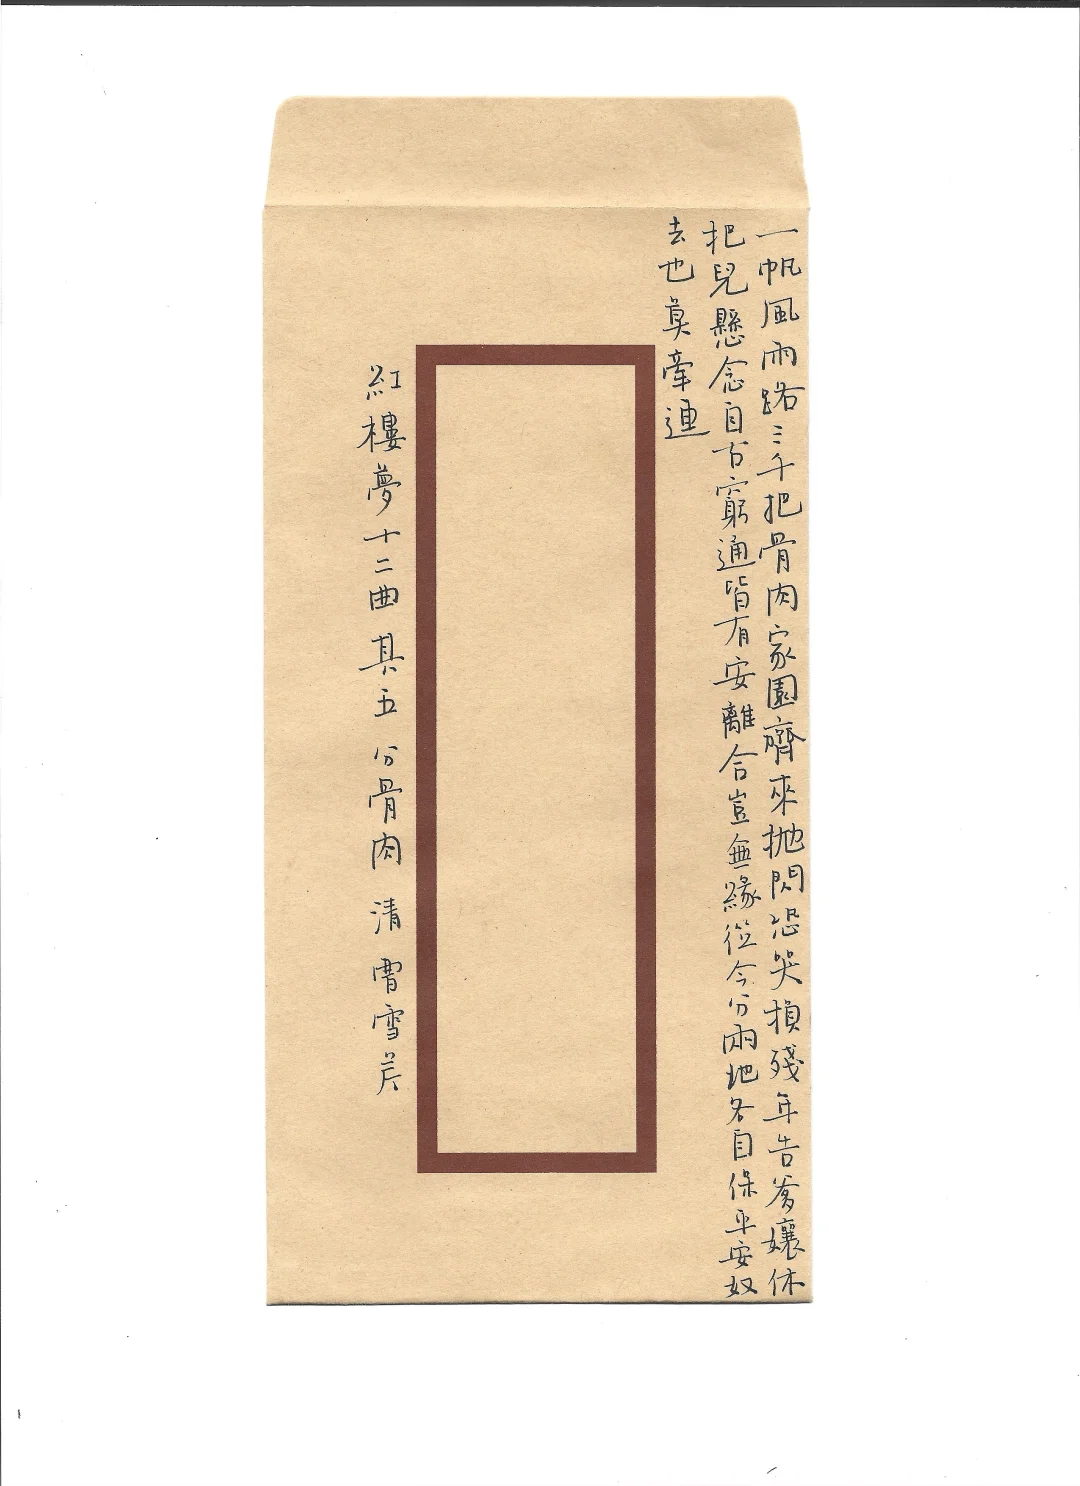 一帆風雨路三千把骨肉家園齊來拋閃恐哭損殘年告爹孃休
把兒懸念自古窮通皆有安離合豈無緣從今分兩地各自保平安奴
去也莫牽連
紅樓夢十二曲其五 分骨肉 清 曹雪芹